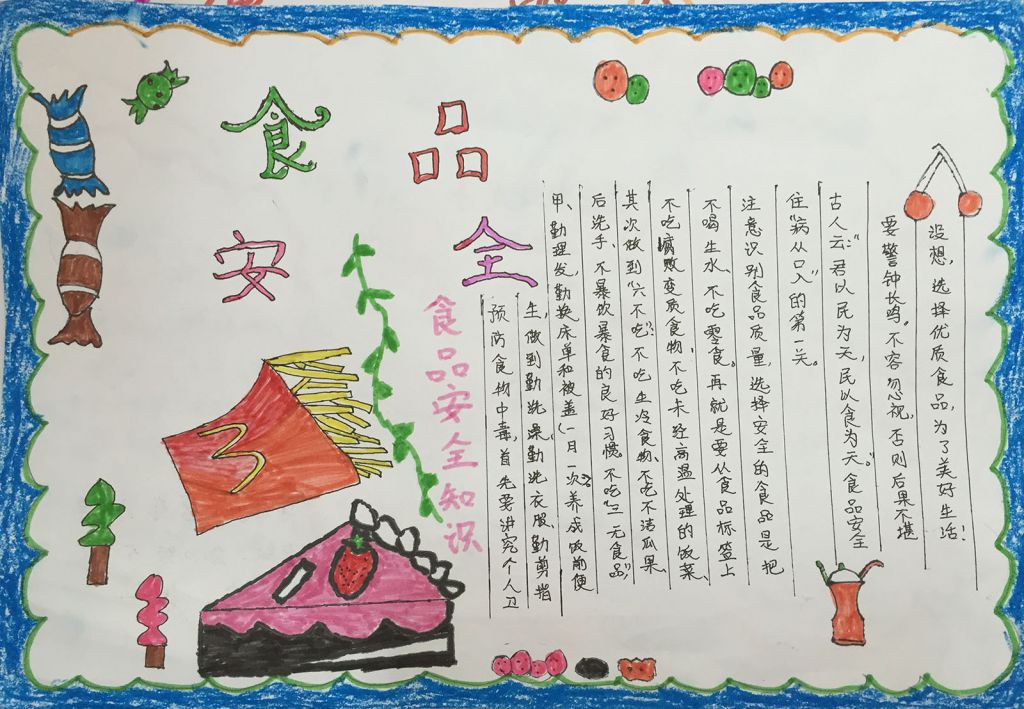 食品
安全
食品安全知识
预防食物中毒,首先要讲究个人卫
生,做到勤洗澡,勤洗衣服,勤剪指
甲、勤理发,勤换床单和被盖(一月一次)养成饭前便
后洗手、不暴饮暴食的良好习惯。不吃"三无食品",
其次做到"六不吃":不吃生冷食物、不吃不洁瓜果、
不吃腐败变质食物、不吃未经高温处理的饭菜、
不喝生水、不吃零食。再就是要从食品标签上
注意识别食品质量,选择安全的食品是把
住"病从口入"的第一关。
古人云:"君以民为天,民以食为天。"食品安全
要警钟长鸣。不容忽视,否则后果不堪
设想,选择优质食品,为了美好生活!